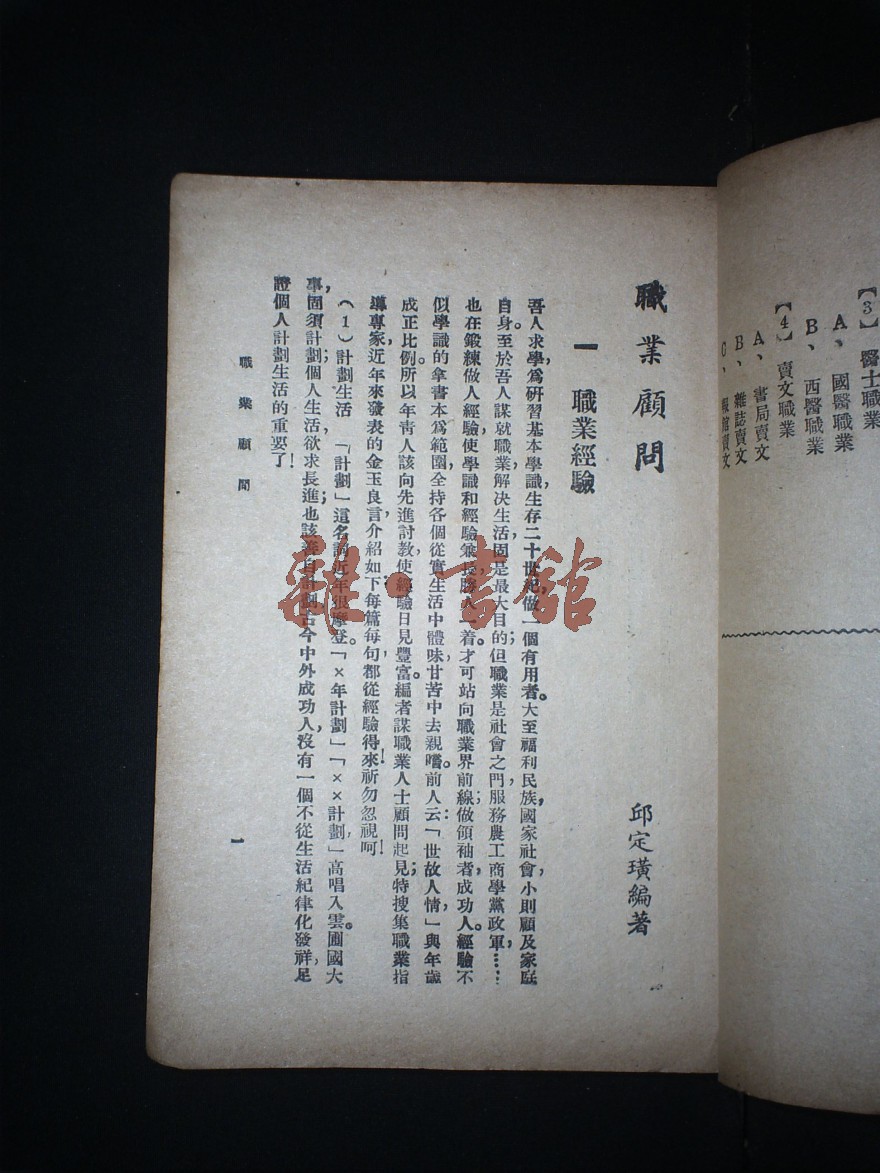 【3】醫士職業
A、國醫職業
B、西醫職業
【4】賣文職業
A、書局賣文
B、雜誌賣文
C、報館賣文
職業顧問
邱定璜編著
一 職業經驗
吾人求學，為研習基本學識，生存二十世紀，做一個有用者。大至福利民族，國家社會，小則顧及家庭
自身。至於吾人謀就職業，解決生活，固是最大目的；但職業是社會之門，服務農工商學黨政軍，……
也在鍛練做人經驗，使學識和經驗兼長，勝人一着，才可站向職業界前線，做領袖者，成功人。經驗不
似學識的拿書本為範圍，全持各個從實生活中體味，甘苦中去親嚐。前人云：「世故人情」與年歲
成正比例。所以年青人該向先進討教，使經驗日見豐富。編者謀職業人士顧問起見，特搜集職業指
導專家，近年來發表的金玉良言，介紹如下；每篇每句，都從經驗得來！祈勿忽視呵！
（1）計劃生活 「計劃」這名詞，近年很摩登。「×年計劃」「××計劃」，高唱入雲。圃國大
事，固須計劃；個人生活，欲求長進，也該善自計劃；古今中外成功人，沒有一個不從生活紀律化發祥，足
證個人計劃生活的重要了！
職業顧問
一
雜·書館